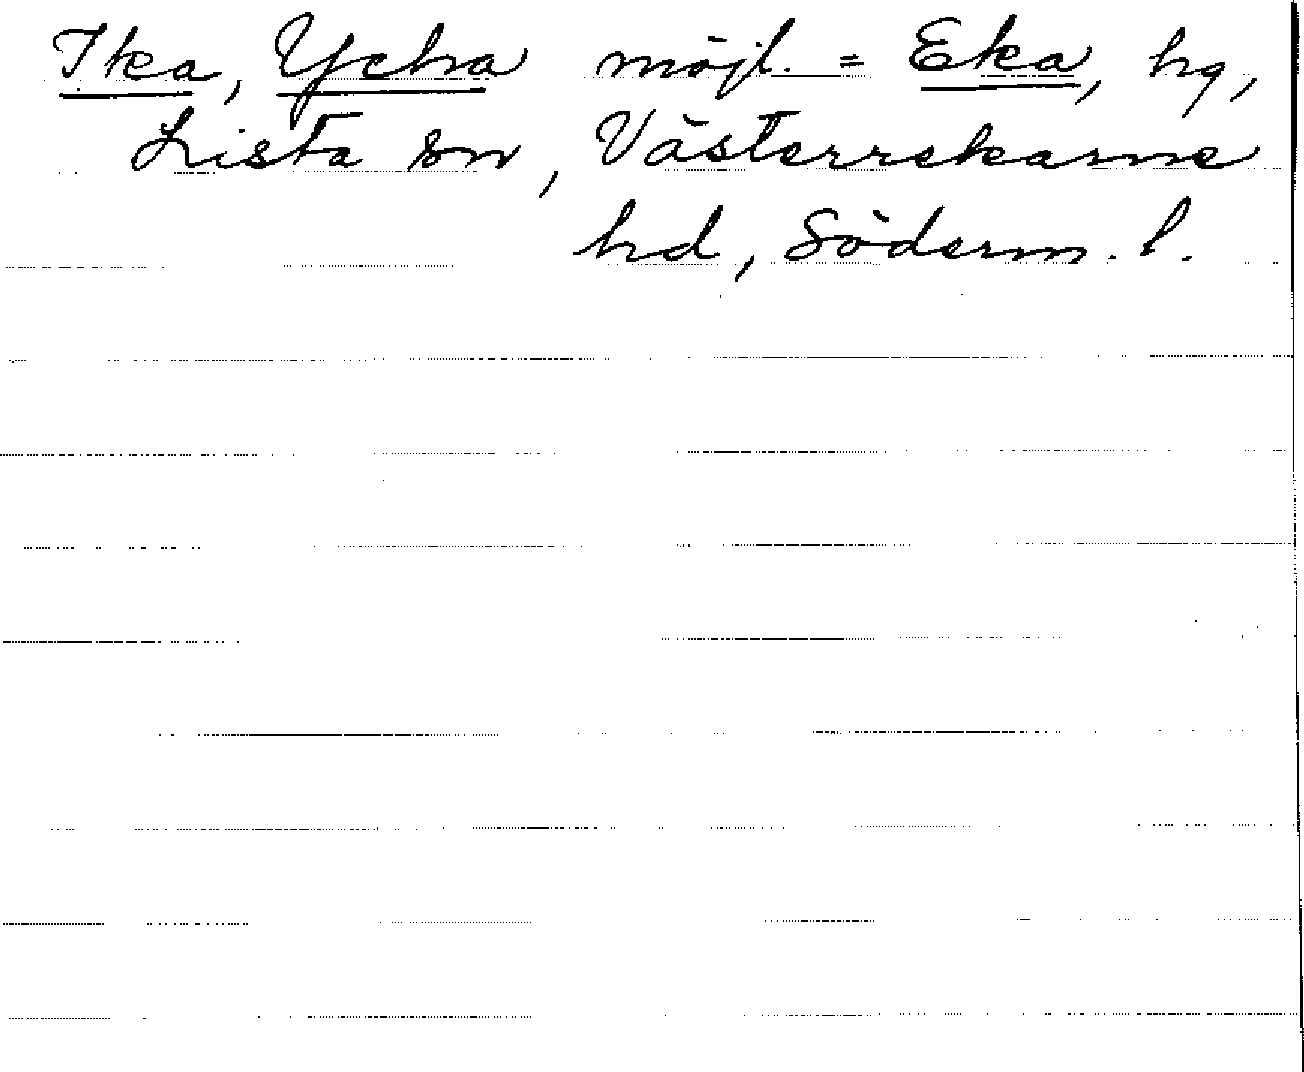 Ika, Ycha möjl. = Eka, hg,
Lista sn, Västerrekarne
hd, Söderm. l.